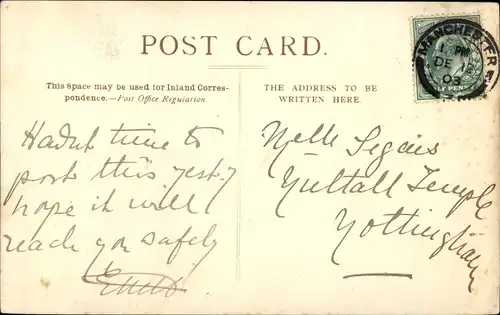 POST CARD.
This space may be used for Inland Corres-
pondence.—Post Office Regulation.
THE ADDRESS TO BE
WRITTEN HERE.
MANCHESTER
1 PM
DE 12
03
Hadnt time to
post this yest-y
hope it will
reach you safely
Nuttall Temple
Nottingham